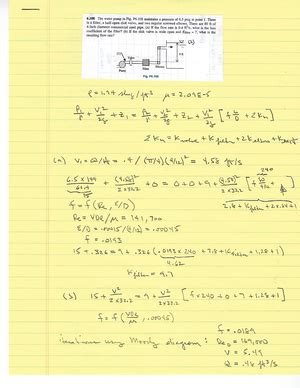 6.108 The water pump in Fig. P6.108 maintains a pressure of 6.5 psig at point 1. There
is a filter, a half-open disk valve, and two regular screwed elbows. There are 80 ft of
4-inch diameter commercial steel pipe. (a) If the flow rate is 0.4 ft³/s, what is the loss
coefficient of the filter? (b) If the disk valve is wide open and K filter = 7, what is the
resulting flow rate?
(2)
Pump
Filter
Valve
Elbows
Fig. P6.108
ρ = 1.94 slug/ft³ μ = 2.09E-5
P₁/γ + V₁²/2g + z₁ = P₂/γ + V₂²/2g + z₂ + V²/2g [f L/D + ΣKm]
ΣKm = Kvalve + Kfilter + 2Kelbow + Kexit
(a) V₁ = Q/A = .4 / (π/4)(4/12)² = 4.58 ft/s
240
6.5 × 144 / 62.4 + (4.58)²/2×32.2 + 0 = 0 + 0 + 9 + (4.58)²/2×32.2 [f 80/(4/12) +
15
2.8 + Kfilter + 2×.64 + 1
f = f(Re, ε/D)
Re = VDρ/μ = 141,700
ε/D = .00015/(4/12) = .00045
f = .0193
15 + .326 = 9 + .326 (.0193×240 + 2.8 + Kfilter + 1.28 + 1)
4.62
Kfilter = 9.7
(b) 15 + V²/2×32.2 = 9 + V²/2×32.2 (f×240 + 0 + 7 + 1.28 + 1)
f = f(VDρ/μ, .00045)
f = .0189
iterations using Moody diagram: Re D = 169,000
V = 5.49
Q = .48 ft³/s